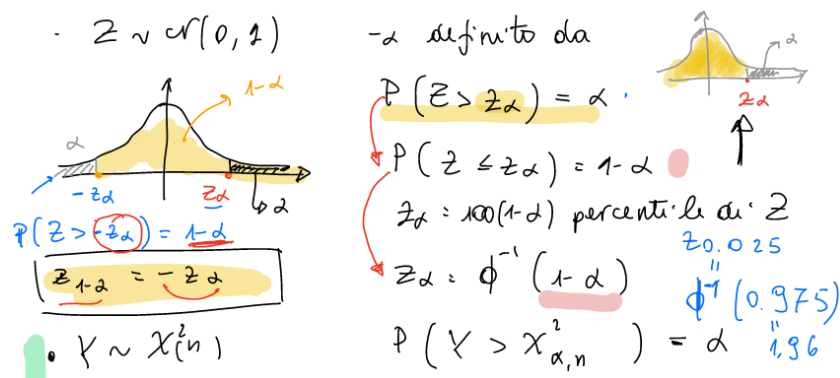 · Z ~ N(0,1)
1-α
α
-zα
zα
α
P(Z > -zα) = 1-α
z1-α = -zα
• Y ~ χ²(n)
-α definito da
P(Z > zα) = α
P(Z ≤ zα) = 1-α
zα = 100(1-α) percentile di Z
zα = ϕ⁻¹(1-α)
P(Y > χ²α,n) = α
α
zα
z0.025
=
ϕ⁻¹(0.975)
=
1,96